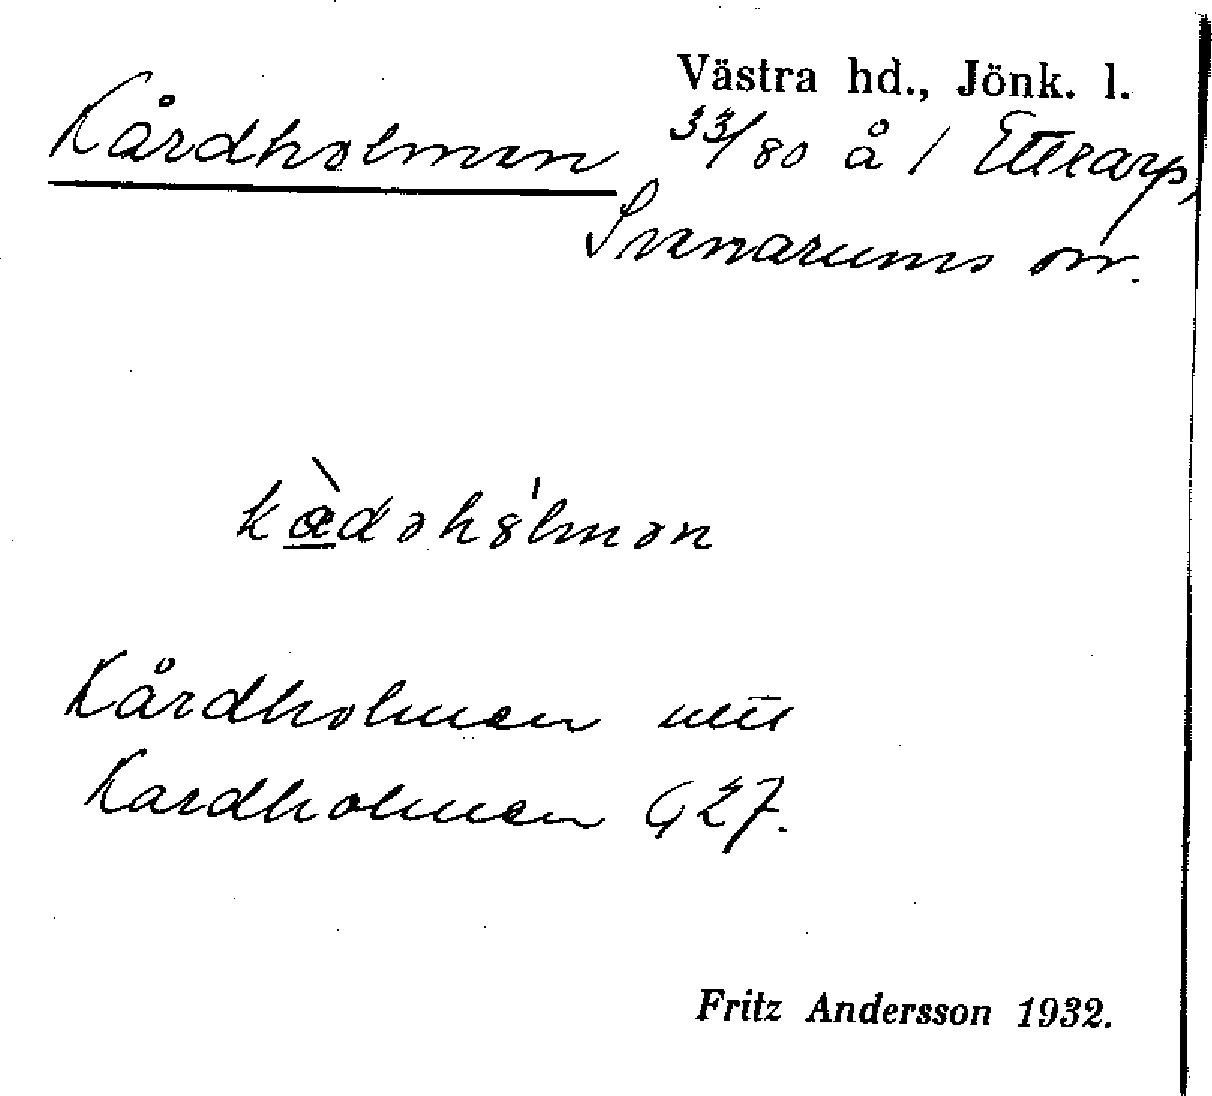 Västra hd., Jönk. l.
Kårdholmen 33/80 å 1 Etterarp,
Svenarums sn.
kàdəhòlmən
Kårdholmen
Kardholmen G27.
Fritz Andersson 1932.